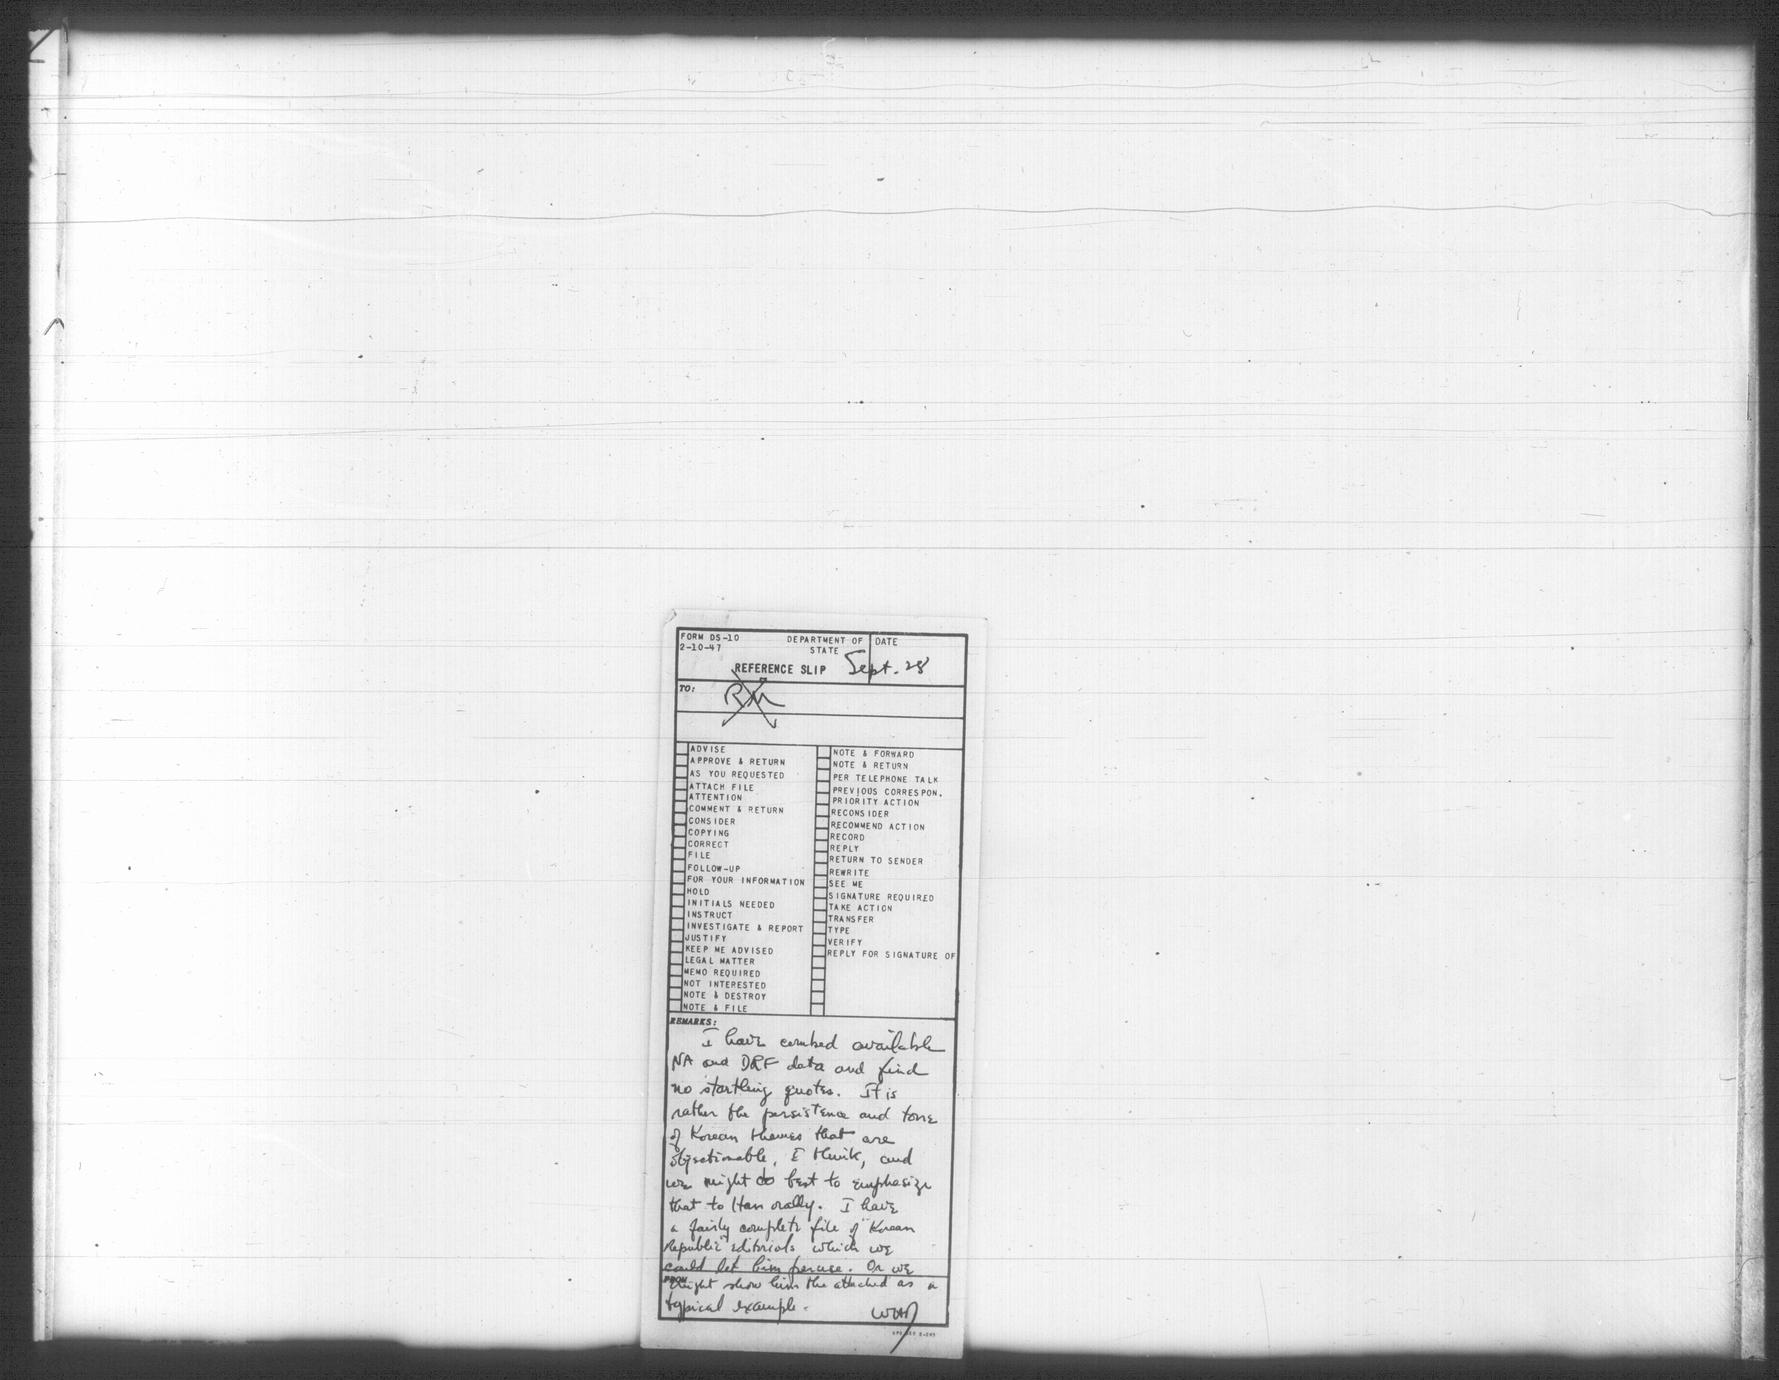 FORM DS-10
2-10-47
DEPARTMENT OF STATE
DATE
REFERENCE SLIP
Sept. 28
TO:
RM
ADVISE
APPROVE & RETURN
AS YOU REQUESTED
ATTACH FILE
ATTENTION
COMMENT & RETURN
CONSIDER
COPYING
CORRECT
FILE
FOLLOW-UP
FOR YOUR INFORMATION
HOLD
INITIALS NEEDED
INSTRUCT
INVESTIGATE & REPORT
JUSTIFY
KEEP ME ADVISED
LEGAL MATTER
MEMO REQUIRED
NOT INTERESTED
NOTE & DESTROY
NOTE & FILE
NOTE & FORWARD
NOTE & RETURN
PER TELEPHONE TALK
PREVIOUS CORRESPON.
PRIORITY ACTION
RECONSIDER
RECOMMEND ACTION
RECORD
REPLY
RETURN TO SENDER
REWRITE
SEE ME
SIGNATURE REQUIRED
TAKE ACTION
TRANSFER
TYPE
VERIFY
REPLY FOR SIGNATURE OF
REMARKS:
I have combed available
NA and DRF data and find
no startling quotes. It is
rather the persistence and tone
of Korean themes that are
objectionable, I think, and
we might do best to emphasize
that to Han orally. I have
a fairly complete file of "Korean
Republic" editorials which we
could let him peruse. Or we
FROM
might show him the attached as a
typical example.